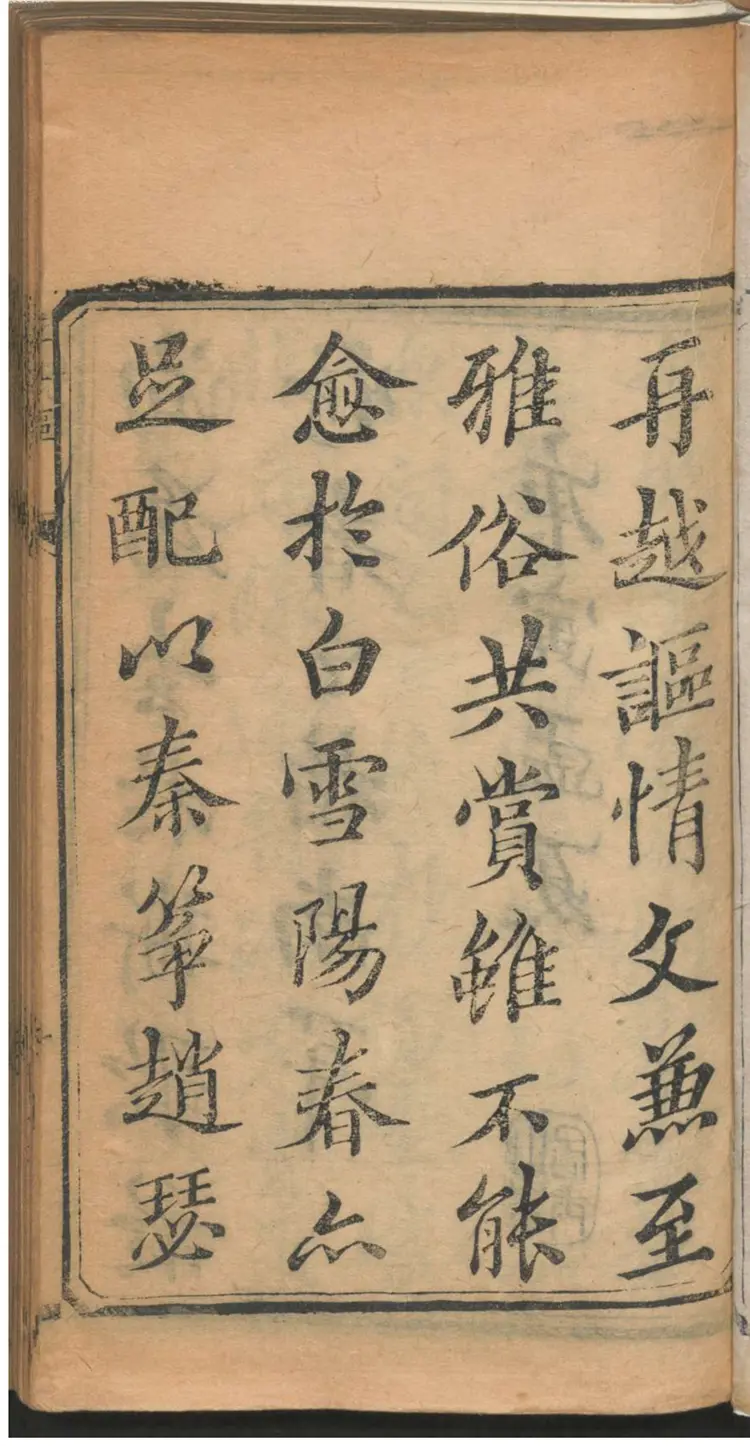 再越謳情文兼至
雅俗共賞雖不能
愈於白雪陽春亦
足配以秦筝趙瑟